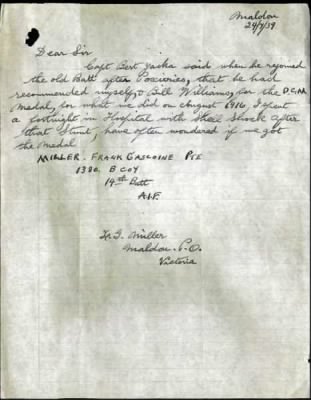 Maldon
24/7/39
Dear Sir
Capt Bert Jacka said when he rejoined
the old Batt after Pozieries, that he had
recommended myself & Bill Williams, for the D.C.M
Medal, for what we did on August 1916, I spent
a fortnight in Hospital with Shell Shock after
that Stunt, have often wondered if we got
the Medal
MILLER - FRANK GASCOINE PTE
B COY
14th Batt
A.I.F.
F. G. Miller
Maldon. P.O.
Victoria